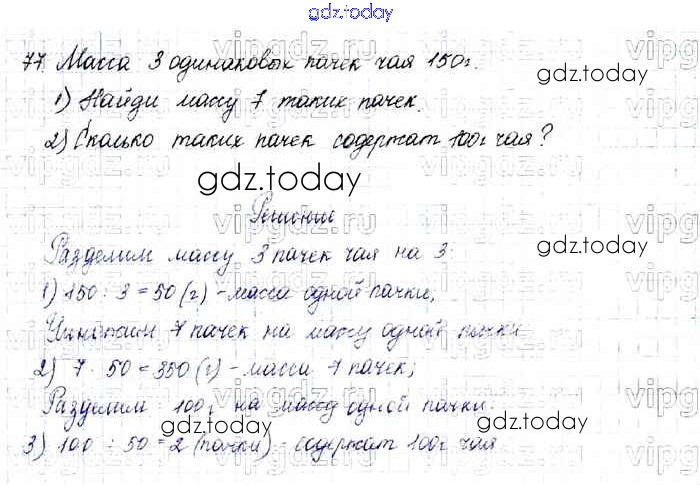 gdz.today
77. Масса 3 одинаковых пачек чая 150г.
gdz.today
1) Найди массу 7 таких пачек.
2) Сколько таких пачек содержат 100г чая?
gdz.today
Решение
Разделим массу 3 пачек чая на 3:
gdz.today
1) 150 : 3 = 50 (г) - масса одной пачки;
Умножим 7 пачек на массу одной пачки
2) 7 · 50 = 350 (г) - масса 7 пачек;
gdz.today
Разделим 100г на массу одной пачки:
3) 100 : 50 = 2 (пачки) - содержат 100г чая